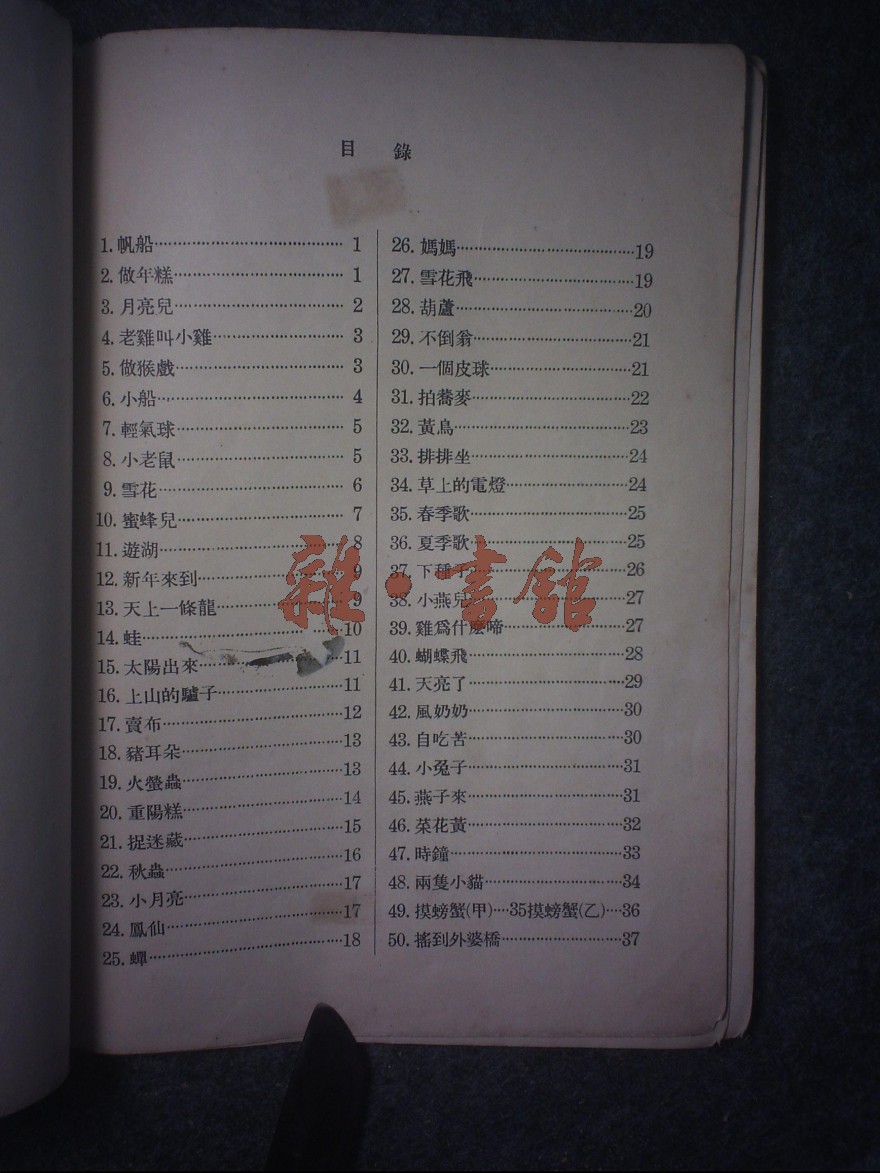 目 錄
1. 帆船 1
2. 做年糕 1
3. 月亮兒 2
4. 老雞叫小雞 3
5. 做猴戲 3
6. 小船 4
7. 輕氣球 5
8. 小老鼠 5
9. 雪花 6
10. 蜜蜂兒 7
11. 遊湖 8
12. 新年來到 9
13. 天上一條龍 9
14. 蛙 10
15. 太陽出來 11
16. 上山的驢子 11
17. 賣布 12
18. 豬耳朵 13
19. 火螢蟲 13
20. 重陽糕 14
21. 捉迷藏 15
22. 秋蟲 16
23. 小月亮 17
24. 鳳仙 17
25. 蟬 18
26. 媽媽 19
27. 雪花飛 19
28. 葫蘆 20
29. 不倒翁 21
30. 一個皮球 21
31. 拍蕎麥 22
32. 黃鳥 23
33. 排排坐 24
34. 草上的電燈 24
35. 春季歌 25
36. 夏季歌 25
37. 下種子 26
38. 小燕兒 27
39. 雞爲什麽啼 27
40. 蝴蝶飛 28
41. 天亮了 29
42. 風奶奶 30
43. 自吃苦 30
44. 小兔子 31
45. 燕子來 31
46. 菜花黃 32
47. 時鐘 33
48. 兩隻小貓 34
49. 摸螃蟹(甲) 35 摸螃蟹(乙) 36
50. 搖到外婆橋 37
雜·書館